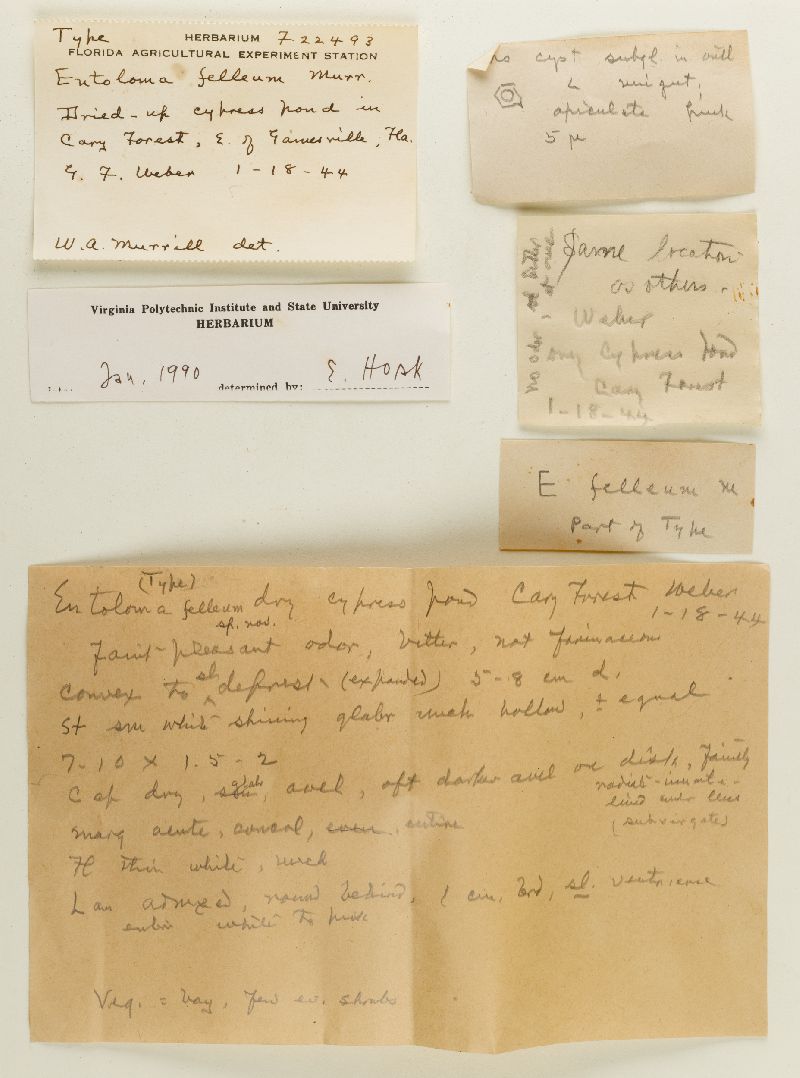 Type HERBARIUM F22493
FLORIDA AGRICULTURAL EXPERIMENT STATION
Entoloma felleum Murr.
Dried-up cypress pond in
Cary Forest, E. of Gainesville, Fla.
G. F. Weber 1-18-44
W. A. Murrill det.
Virginia Polytechnic Institute and State University
HERBARIUM
Jan, 1990 determined by: E. Horak
no cyst subgl. in outl
apiculate pink
5 µ
Same location
as others.
Weber
dry Cypress Pond
Cary Forest
1-18-44
no odor, bitter
at once
E felleum M
Part of Type
(Type)
Entoloma felleum dry cypress pond Cary Forest Weber
sp. nov. 1-18-44
Faint-pleasant odor, bitter, not farinaceous
convex to sl depress (expanded) 5-8 cm d.
St sm white shining glabr much hollow, ± equal
7-10 x 1.5-2
Cap dry, glabr, avel, oft darker avel on disk, faintly
lined under lens
(subvirgate)
marg acute, concol, even, entire
Fl thin white,
Lam adnexed, round behind, 1 cm. brd, sl. ventricose
entire white to pink
Veg. = bay, few ev. shrubs